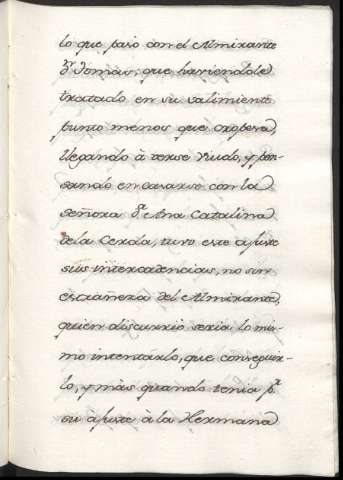 lo que paso con el Almirante
Dn Tomas; que haviendole
tratado en su
punto menos que
llegando à verse Viudo, y pen-
sando en casarse con la
señora Da Ana Catalina
de la Cerda, tuvo este ajuste
sus intercadencias, no sin
estrañeza del Almirante,
quien discurrio seria lo mis-
mo intentarlo, que conseguir-
lo, y màs quando tenia pr
su ajuste à la Hermana